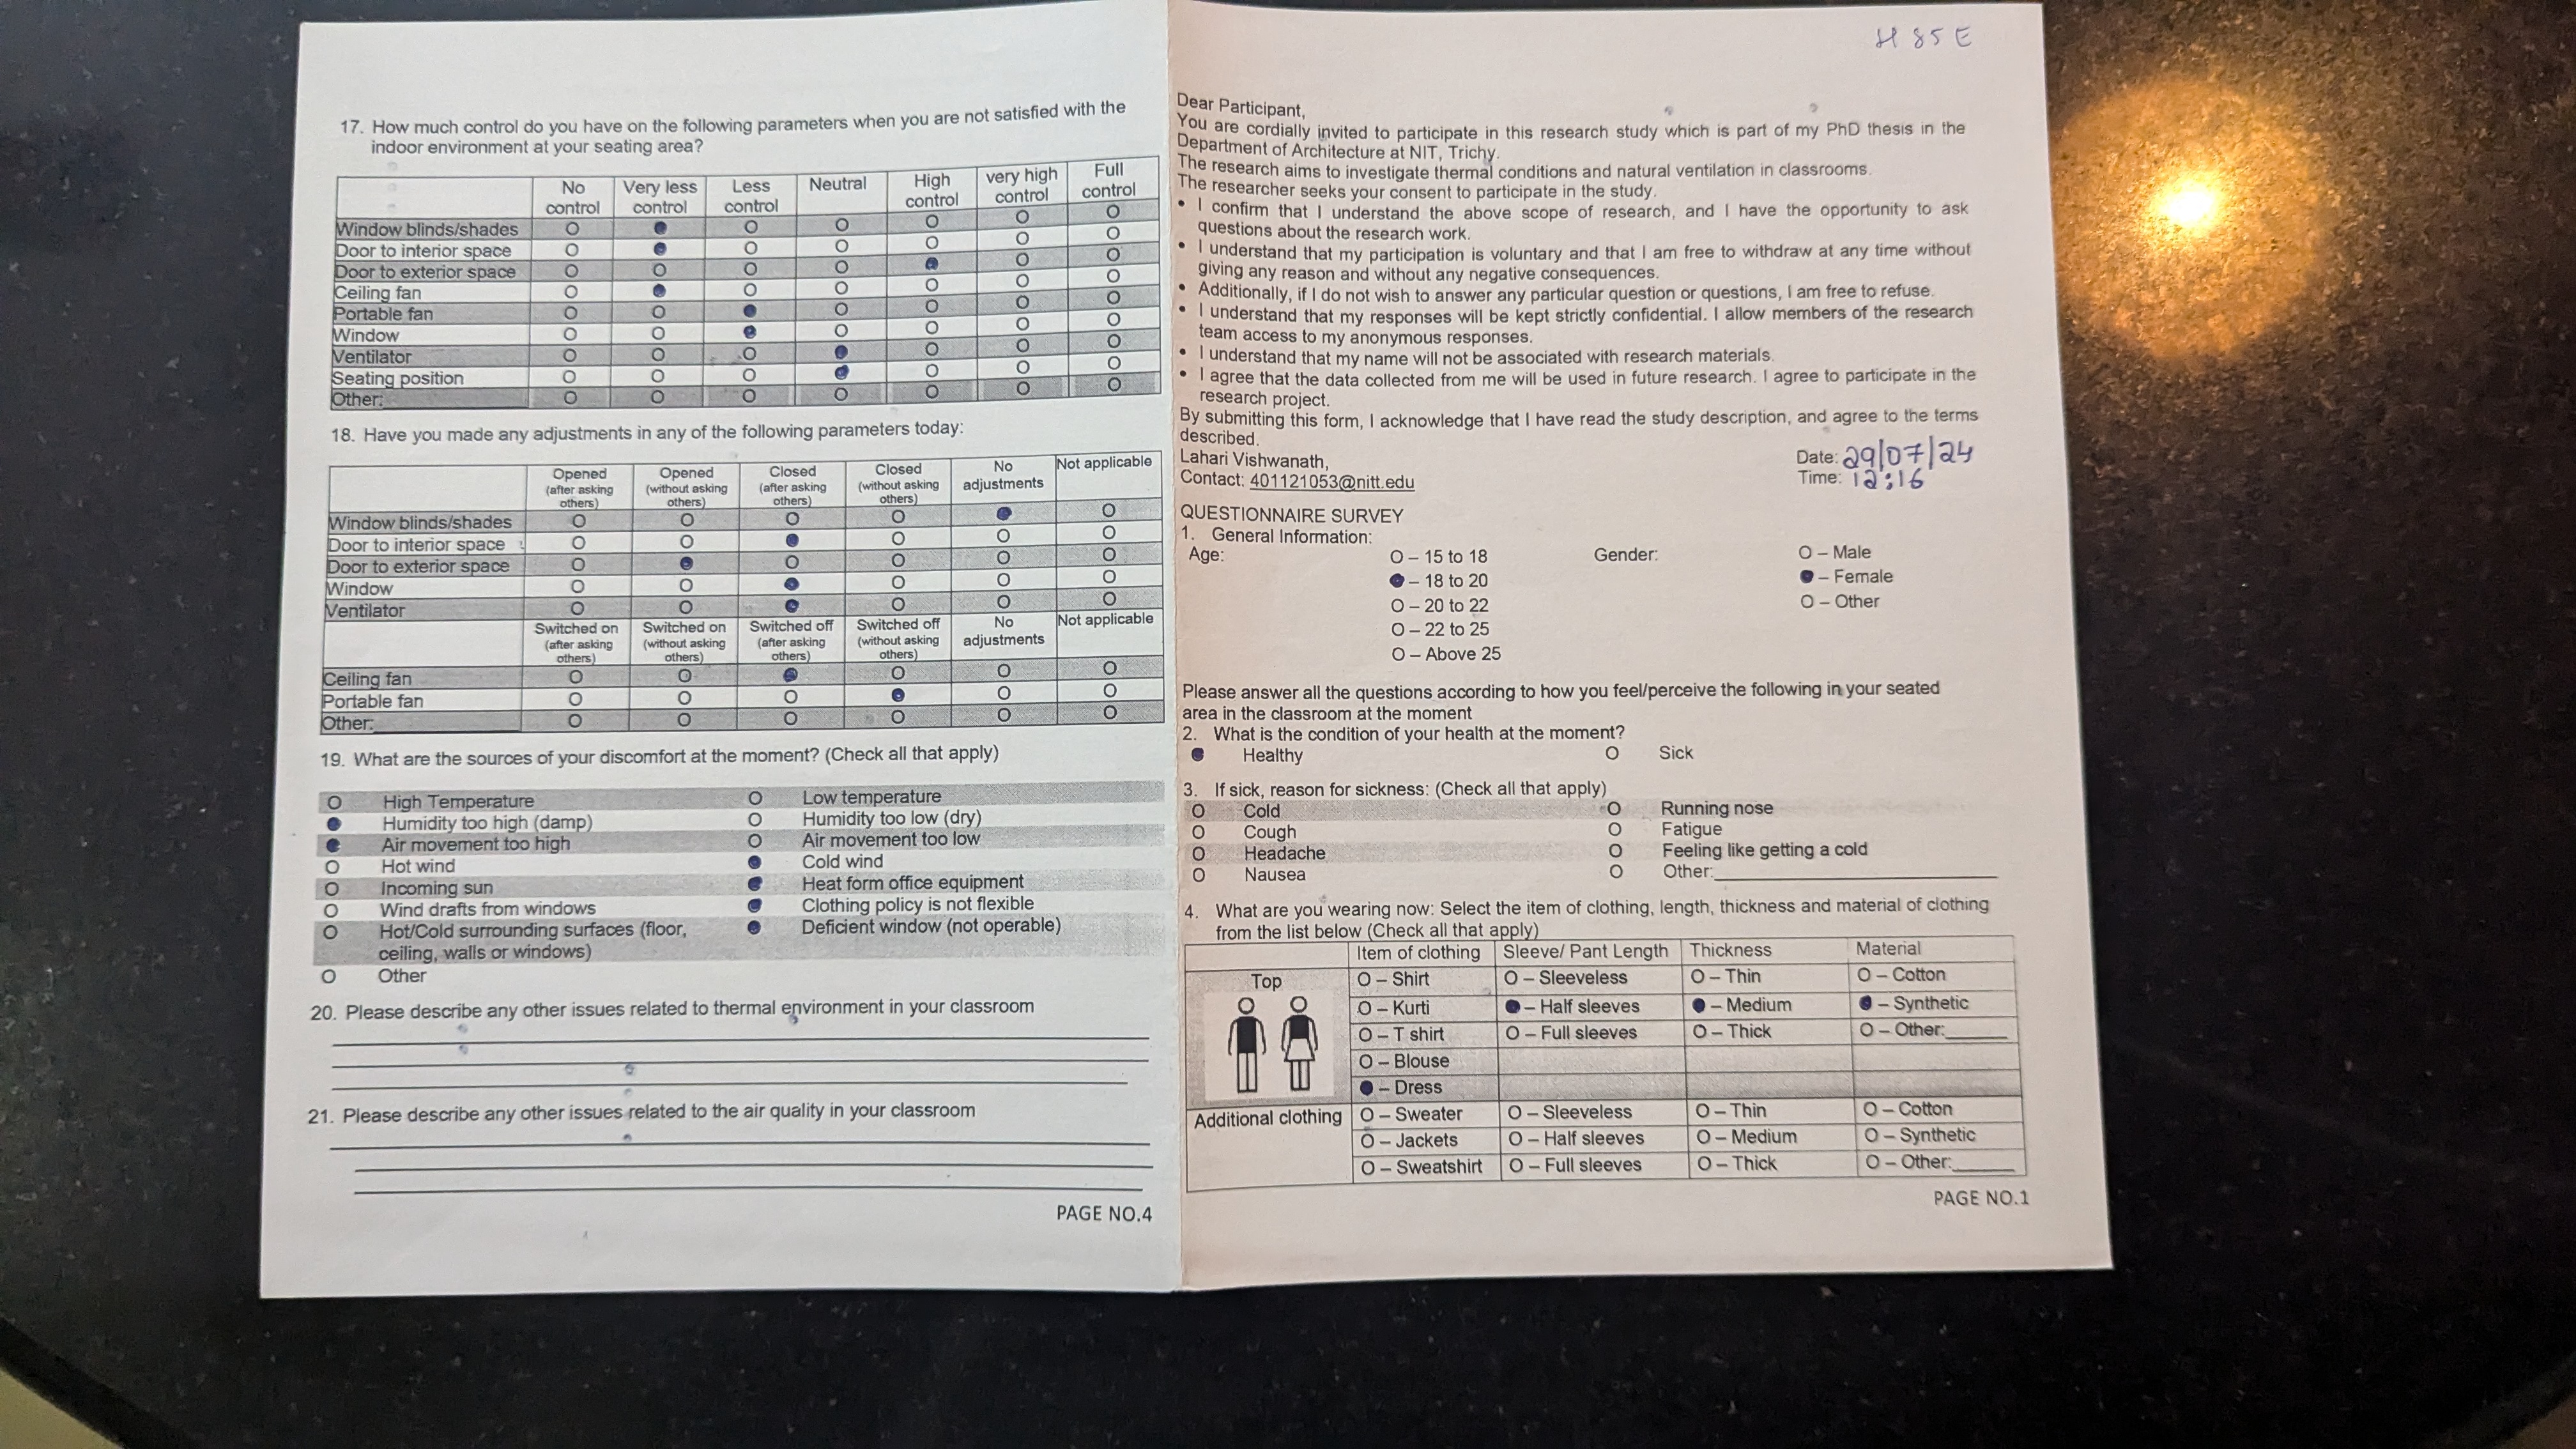 17. How much control do you have on the following parameters when you are not satisfied with the
indoor environment at your seating area?
No control Very less control Less control Neutral High control very high control Full control
Window blinds/shades O ● O O O O O
Door to interior space O ● O O O O O
Door to exterior space O O O O ● O O
Ceiling fan O ● O O O O O
Portable fan O O ● O O O O
Window O O ● O O O O
Ventilator O O O ● O O O
Seating position O O O ● O O O
Other: O O O O O O O
18. Have you made any adjustments in any of the following parameters today:
Opened (after asking others) Opened (without asking others) Closed (after asking others) Closed (without asking others) No adjustments Not applicable
Window blinds/shades O O O O ● O
Door to interior space O O ● O O O
Door to exterior space O ● O O O O
Window O O ● O O O
Ventilator O O ● O O O
Switched on (after asking others) Switched on (without asking others) Switched off (after asking others) Switched off (without asking others) No adjustments Not applicable
Ceiling fan O O ● O O O
Portable fan O O O ● O O
Other: O O O O O O
19. What are the sources of your discomfort at the moment? (Check all that apply)
O High Temperature O Low temperature
● Humidity too high (damp) O Humidity too low (dry)
● Air movement too high O Air movement too low
O Hot wind ● Cold wind
O Incoming sun ● Heat form office equipment
O Wind drafts from windows ● Clothing policy is not flexible
O Hot/Cold surrounding surfaces (floor, ● Deficient window (not operable)
ceiling, walls or windows)
O Other
20. Please describe any other issues related to thermal environment in your classroom
21. Please describe any other issues related to the air quality in your classroom
PAGE NO.4
H 85 E
Dear Participant,
You are cordially invited to participate in this research study which is part of my PhD thesis in the
Department of Architecture at NIT, Trichy.
The research aims to investigate thermal conditions and natural ventilation in classrooms.
The researcher seeks your consent to participate in the study.
• I confirm that I understand the above scope of research, and I have the opportunity to ask
questions about the research work.
• I understand that my participation is voluntary and that I am free to withdraw at any time without
giving any reason and without any negative consequences.
• Additionally, if I do not wish to answer any particular question or questions, I am free to refuse.
• I understand that my responses will be kept strictly confidential. I allow members of the research
team access to my anonymous responses.
• I understand that my name will not be associated with research materials.
• I agree that the data collected from me will be used in future research. I agree to participate in the
research project.
By submitting this form, I acknowledge that I have read the study description, and agree to the terms
described.
Lahari Vishwanath, Date: 29/07/24
Contact: 401121053@nitt.edu Time: 12:16
QUESTIONNAIRE SURVEY
1. General Information:
Age: O – 15 to 18 Gender: O – Male
● – 18 to 20 ● – Female
O – 20 to 22 O – Other
O – 22 to 25
O – Above 25
Please answer all the questions according to how you feel/perceive the following in your seated
area in the classroom at the moment
2. What is the condition of your health at the moment?
● Healthy O Sick
3. If sick, reason for sickness: (Check all that apply)
O Cold O Running nose
O Cough O Fatigue
O Headache O Feeling like getting a cold
O Nausea O Other:
4. What are you wearing now: Select the item of clothing, length, thickness and material of clothing
from the list below (Check all that apply)
Item of clothing Sleeve/ Pant Length Thickness Material
Top O – Shirt O – Sleeveless O – Thin O – Cotton
O – Kurti ● – Half sleeves ● – Medium ● – Synthetic
O – T shirt O – Full sleeves O – Thick O – Other:
O – Blouse
● – Dress
Additional clothing O – Sweater O – Sleeveless O – Thin O – Cotton
O – Jackets O – Half sleeves O – Medium O – Synthetic
O – Sweatshirt O – Full sleeves O – Thick O – Other:
PAGE NO.1